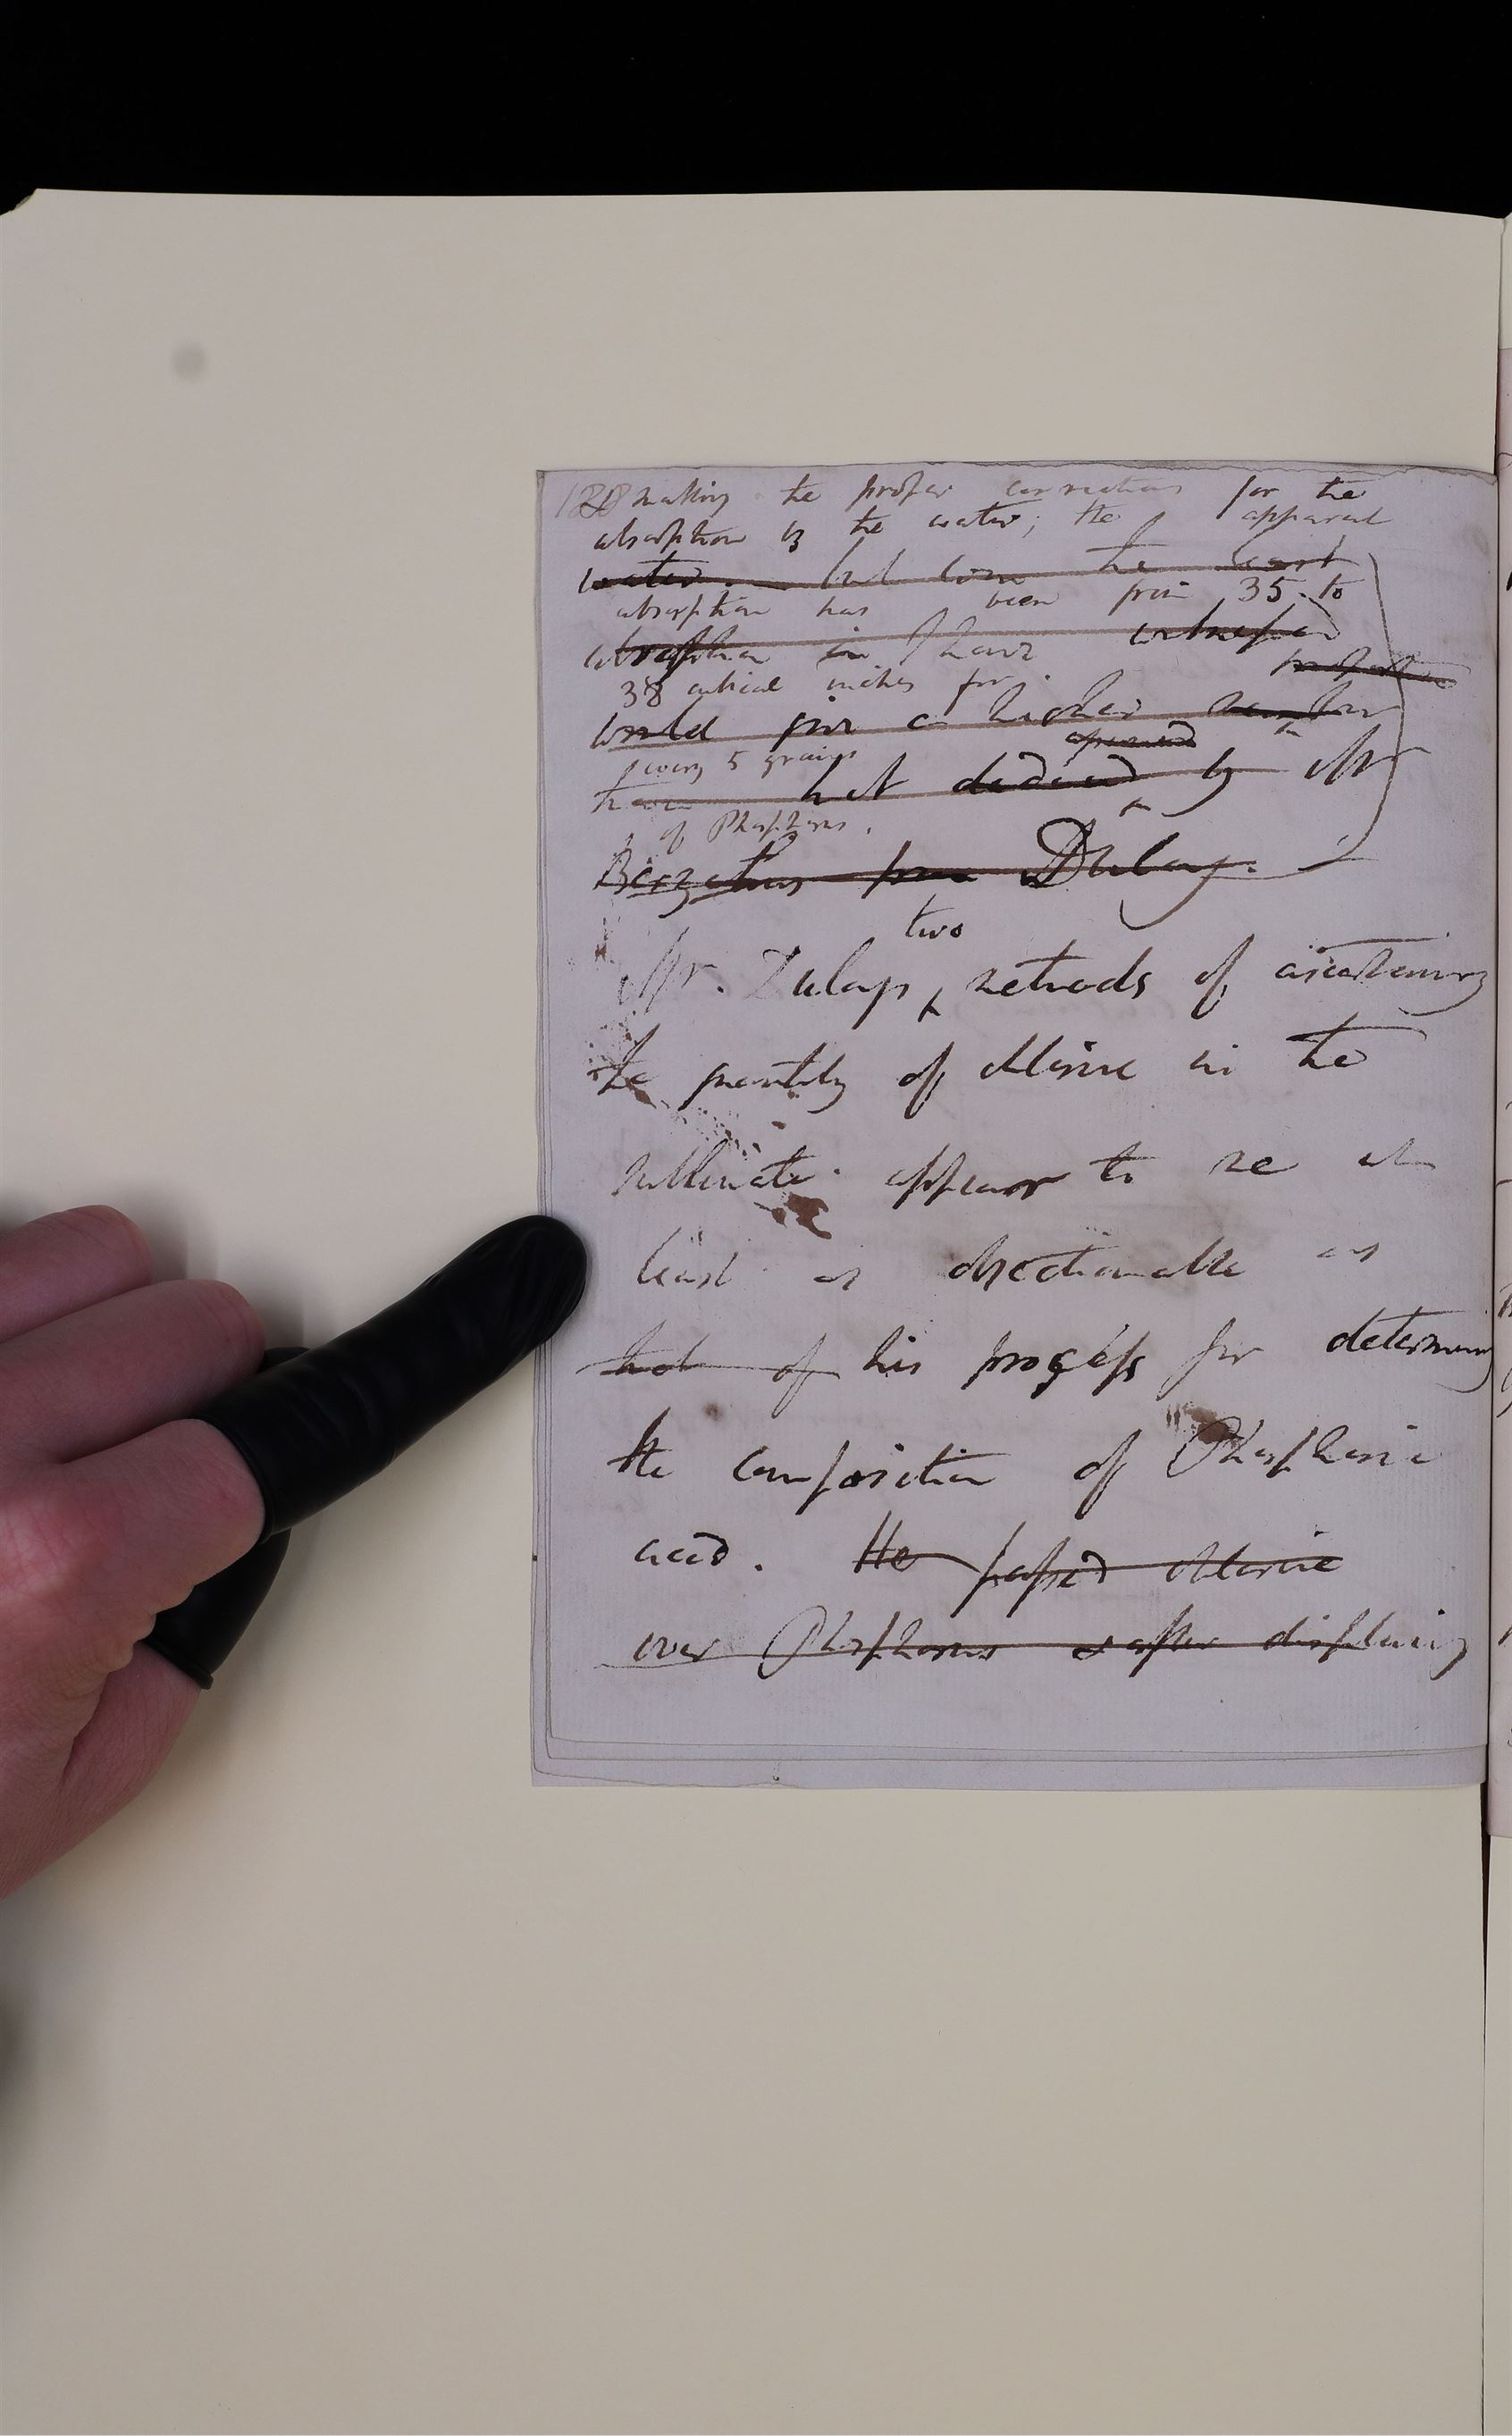 128 making the proper corrections for the
absorption by the water; the apparent
water. but even the least
absorption has been from 35 to
absorption in I have witnessed
proportion
38 cubical inches for
would give a higher number
every 5 grains
apurned
have not deduced by Mr
of Phosphorus.
Berzelius from Dulong.
two
Mr. Dulongs methods of ascertaining
the quantity of chlorine in the
sublimate appear to me at
least as objectionable as
that of his process for determining
the composition of Phosphoric
acid. He passed chlorine
over Phosphorus & after displacing